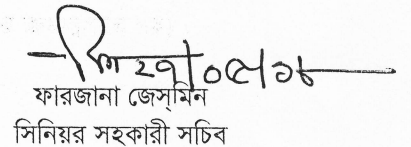 ফারজানা জেস্‌মিন
সিনিয়র সহকারী সচিব